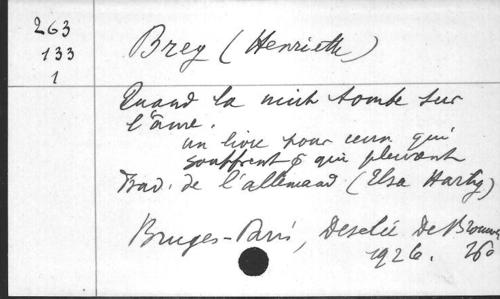 263
133
1
Brey (Henriette)
Quand la nuit tombe sur
l'âme.
un livre pour ceux qui
souffrent & qui pleurent
Trad. de l'allemand (Elsa Hartig)
Bruges-Paris, Desclée De Brouwer
1926. 260